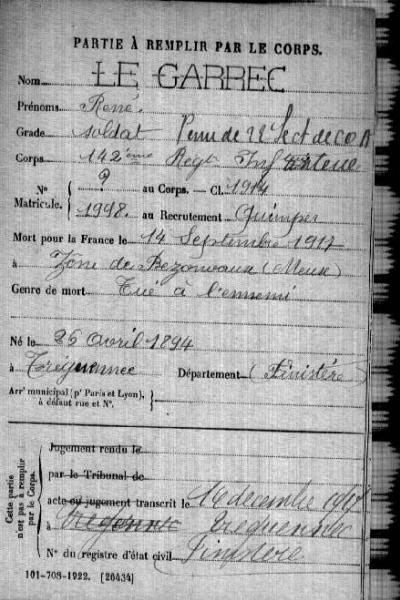 PARTIE À REMPLIR PAR LE CORPS.
Nom LE GARREC
Prénoms René.
Grade soldat Venu de 22 Sect de COA
Corps 142ème Régt Inf
N° Matricule. { ? au Corps. — Cl. 1914
1998. au Recrutement Quimper
Mort pour la France le 14 Septembre 1917
à Zone de Bezonvaux (Meuse)
Genre de mort Tué à l'ennemi
Né le 26 avril 1894
à Tréguennec Département (Finistère)
Arr' municipal (p' Paris et Lyon), à défaut rue et N°.
Cette partie n'est pas à remplir par le Corps.
Jugement rendu le
par le Tribunal de
acte ou jugement transcrit le 14 décembre 1917
à Tregonnec Treguennec
N° du registre d'état civil Finistère
101-708-1922. [26434]